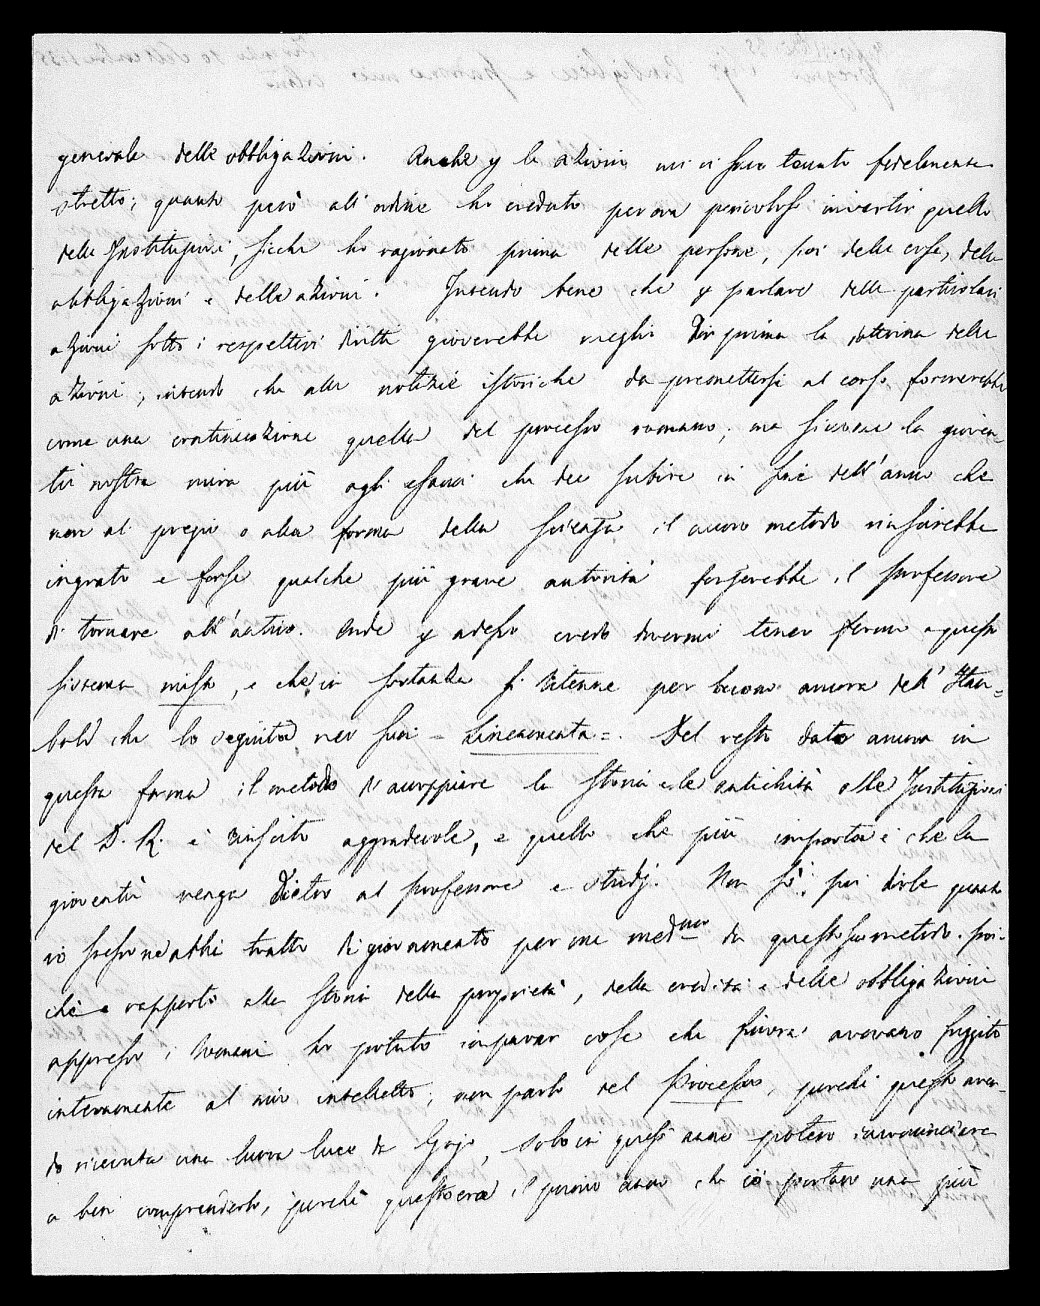 generale delle obbligazioni. Anche p le azioni mi vi sono tenuto fedelmente
stretto; quanto però all'ordine ho creduto per ora pericoloso invertir quello
delle Instituzioni, sicché ho ragionato prima delle persone, poi delle cose, delle
obbligazioni e delle azioni. Intendo bene che p parlare delle particolari
azioni sotto i respettivi diritti gioverebbe meglio dir prima la dottrina delle
azioni; intendo che alle notizie istoriche da premettersi al corso formerebbe
come una continuazione quella del processo romano; ma siccome la gioven-
tù nostra mira più agli esami che dee subire in fine dell'anno che
non al pregio o alla forma della scienza il nuovo metodo riuscirebbe
ingrato e forse qualche più grave autorità forzerebbe il professore
di tornare all'antico. Onde p adesso credo dovermi tener fermo a questo
sistema misto, e che in sostanza si ritenne per buono ancora dell'
che lo seguitò nei suoi = Lineamenta =. Del resto dato ancora in
questa forma il metodo d'accoppiare la storia e le antichità alle Instituzioni
del D. R. è riuscito aggradevole, e quello che più importa è che la
gioventù venga dietro al professore e studj. Non so poi dirle quanto
io stesso ne abbi tratto di giovamento per me med.mo da questo suo metodo. Poi-
ché e rapporto alla storia della proprietà, della eredità e delle obbligazioni
appresso i Romani ho potuto imparar cose che finora avevano fuggito
interamente al mio intelletto; non parlo del Processo, perché questo aven-
do ricevuta una nuova luce da Gajo, solo in quest'anno potevo incominciare
a ben comprenderlo, perché questo era il primo anno che io portavo una più